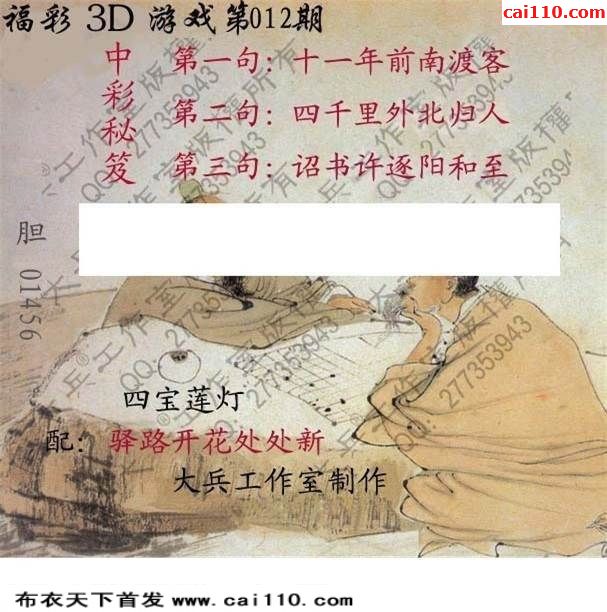 福彩 3D 游戏第012期
cai110.com
中彩秘笈
第一句：十一年前南渡客
第二句：四千里外北归人
第三句：诏书许逐阳和至
胆 01456
四宝莲灯
配：驿路开花处处新
大兵工作室制作
大兵工作室版权所有
QQ：277353943
布衣天下首发 www.cai110.com